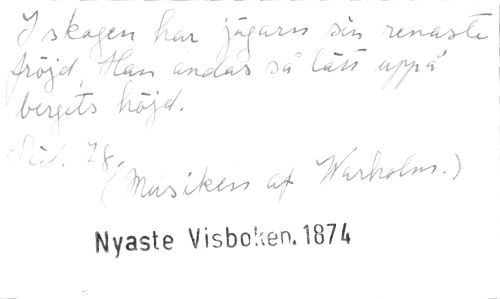 I skogen har jägarn sin renaste
fröjd, Han andas så lätt uppå
bergets höjd.
Sid. 28.
(Musiken af Warholm.)
Nyaste Visboken. 1874